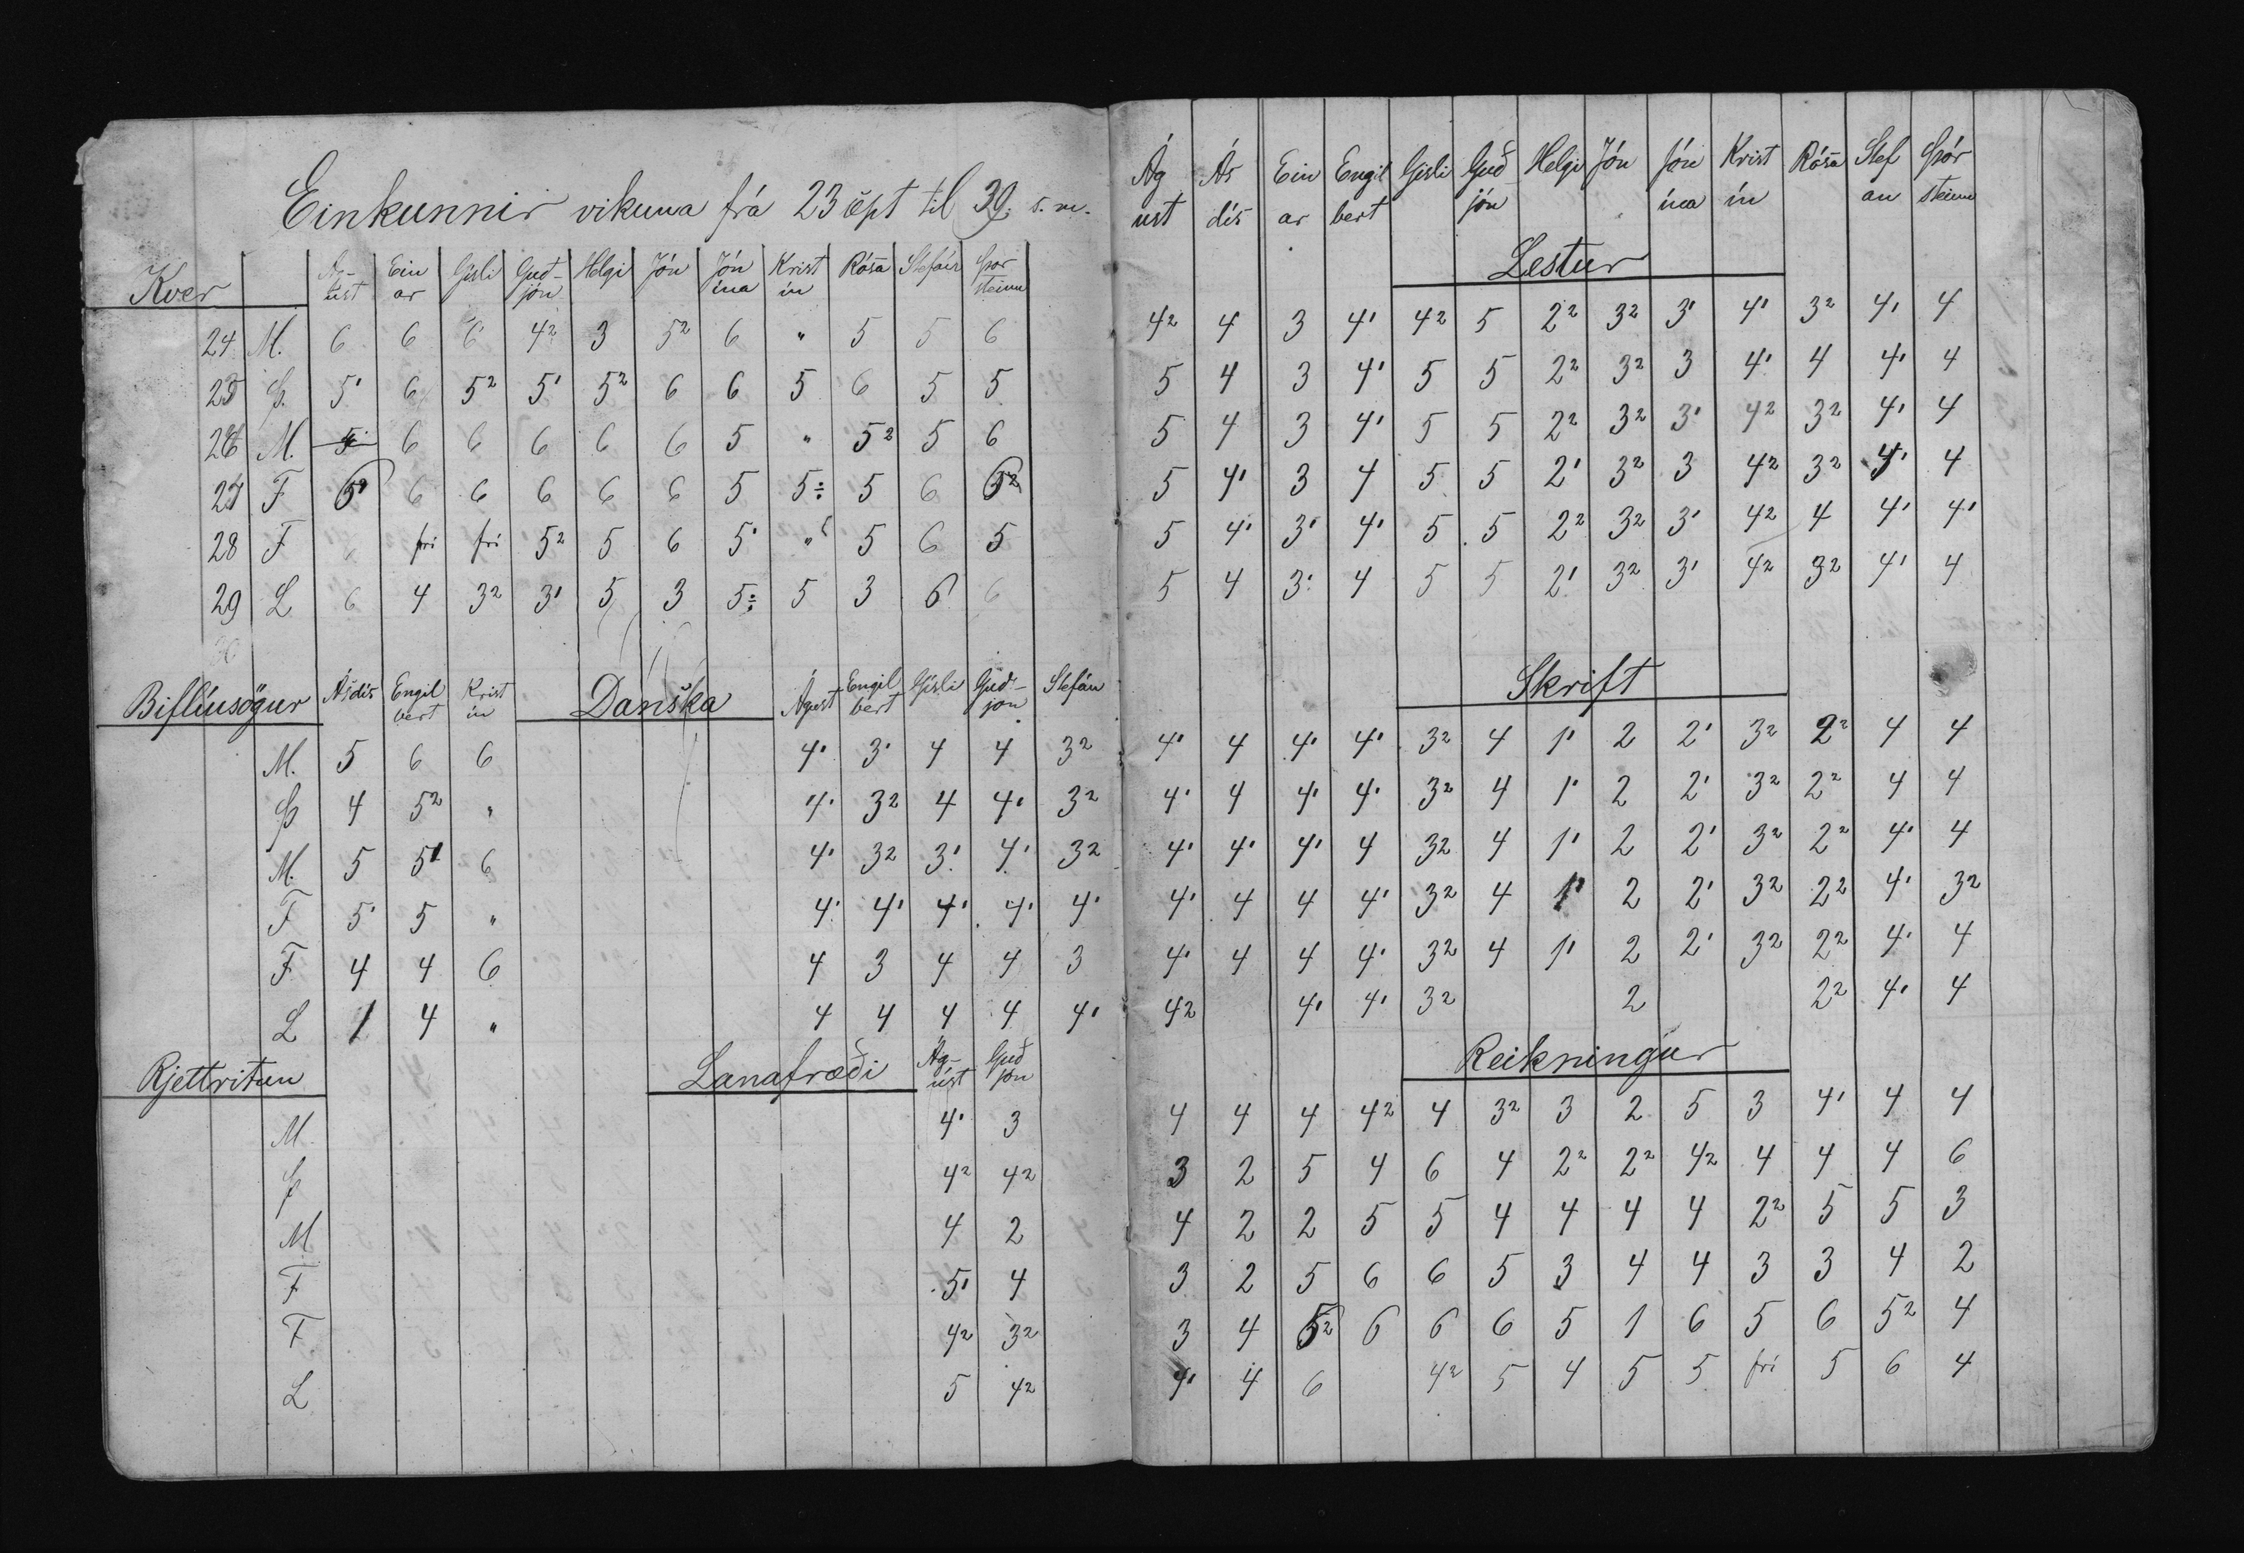 Einkunnir vikuna frá 23 sept til 30. s.m.
Kver Ág-úst Ein ar Gísli Guð-jón Helgi Jón Jón ína Krist ín Rósa Stefán Þor steinn
24 M. 6 6 6 4² 3 5² 6 " 5 5 6
25 Þ. 5' 6 5² 5' 5² 6 6 5 6 5 5
26 M. 5 6 6 6 6 6 5 " 5² 5 6
27 F 6 6 6 6 6 5 5÷ 5 6
28 F 6 frí frí 5² 5 6 5' " 5 6 5
29 L 6 4 3² 3' 5 3 5÷ 5 3 6 6
30
Biflíusögur Ásdís Engil bert Krist ín
M. 5 6 6
Þ 4 5² "
M. 5 5' 6
F 5' 5 "
F 4 4 6
L 1 4 "
Danska Ágúst Engil bert Gísli Guð-jón Stefán
4' 3' 4 4 3²
4' 3² 4 4' 3²
4' 3² 3' 4' 3²
4' 4' 4' 4' 4'
4 3 4 4 3
4 4 4 4 4'
Rjettritun
M
Þ
M
F
F
L
Lanafræði Ág-úst Guð jón
4' 3
4² 4²
4 2
5' 4
4² 3²
5 4²
Ág úst Ás dís Ein ar Engil bert Gísli Guð jón Helgi Jón Jón ína Krist ín Rósa Stef án Þór steinn
Lestur
4² 4 3 4' 4² 5 2² 3² 3' 4' 3² 4' 4
5 4 3 4' 5 5 2² 3² 3 4' 4 4' 4
5 4 3 4' 5 5 2² 3² 3' 4² 3² 4' 4
5 4' 3 4 5 5 2' 3² 3 4² 3² 4' 4
5 4' 3' 4' 5 5 2² 3² 3' 4² 4 4' 4'
5 4 3' 4 5 5 2' 3² 3' 4² 3² 4' 4
Skrift
4' 4 4' 4' 3² 4 1' 2 2' 3² 2² 4 4
4' 4 4' 4' 3² 4 1' 2 2' 3² 2² 4 4
4' 4' 4' 4 3² 4 1' 2 2' 3² 2² 4' 4
4' 4 4 4' 3² 4 1' 2 2' 3² 2² 4' 3²
4' 4 4 4' 3² 4 1' 2 2' 3² 2² 4' 4
4² 4' 4' 3² 2 2² 4' 4
Reikningur
4 4 4 4² 4 3² 3 2 5 3 4' 4 4
3 2 5 4 6 4 2² 2² 4² 4 4 4 6
4 2 2 5 5 4 4 4 4 2² 5 5 3
3 2 5 6 6 5 3 4 4 3 3 4 2
3 4 5² 6 6 6 5 1 6 5 6 5² 4
4' 4 6 4² 5 4 5 5 frí 5 6 4